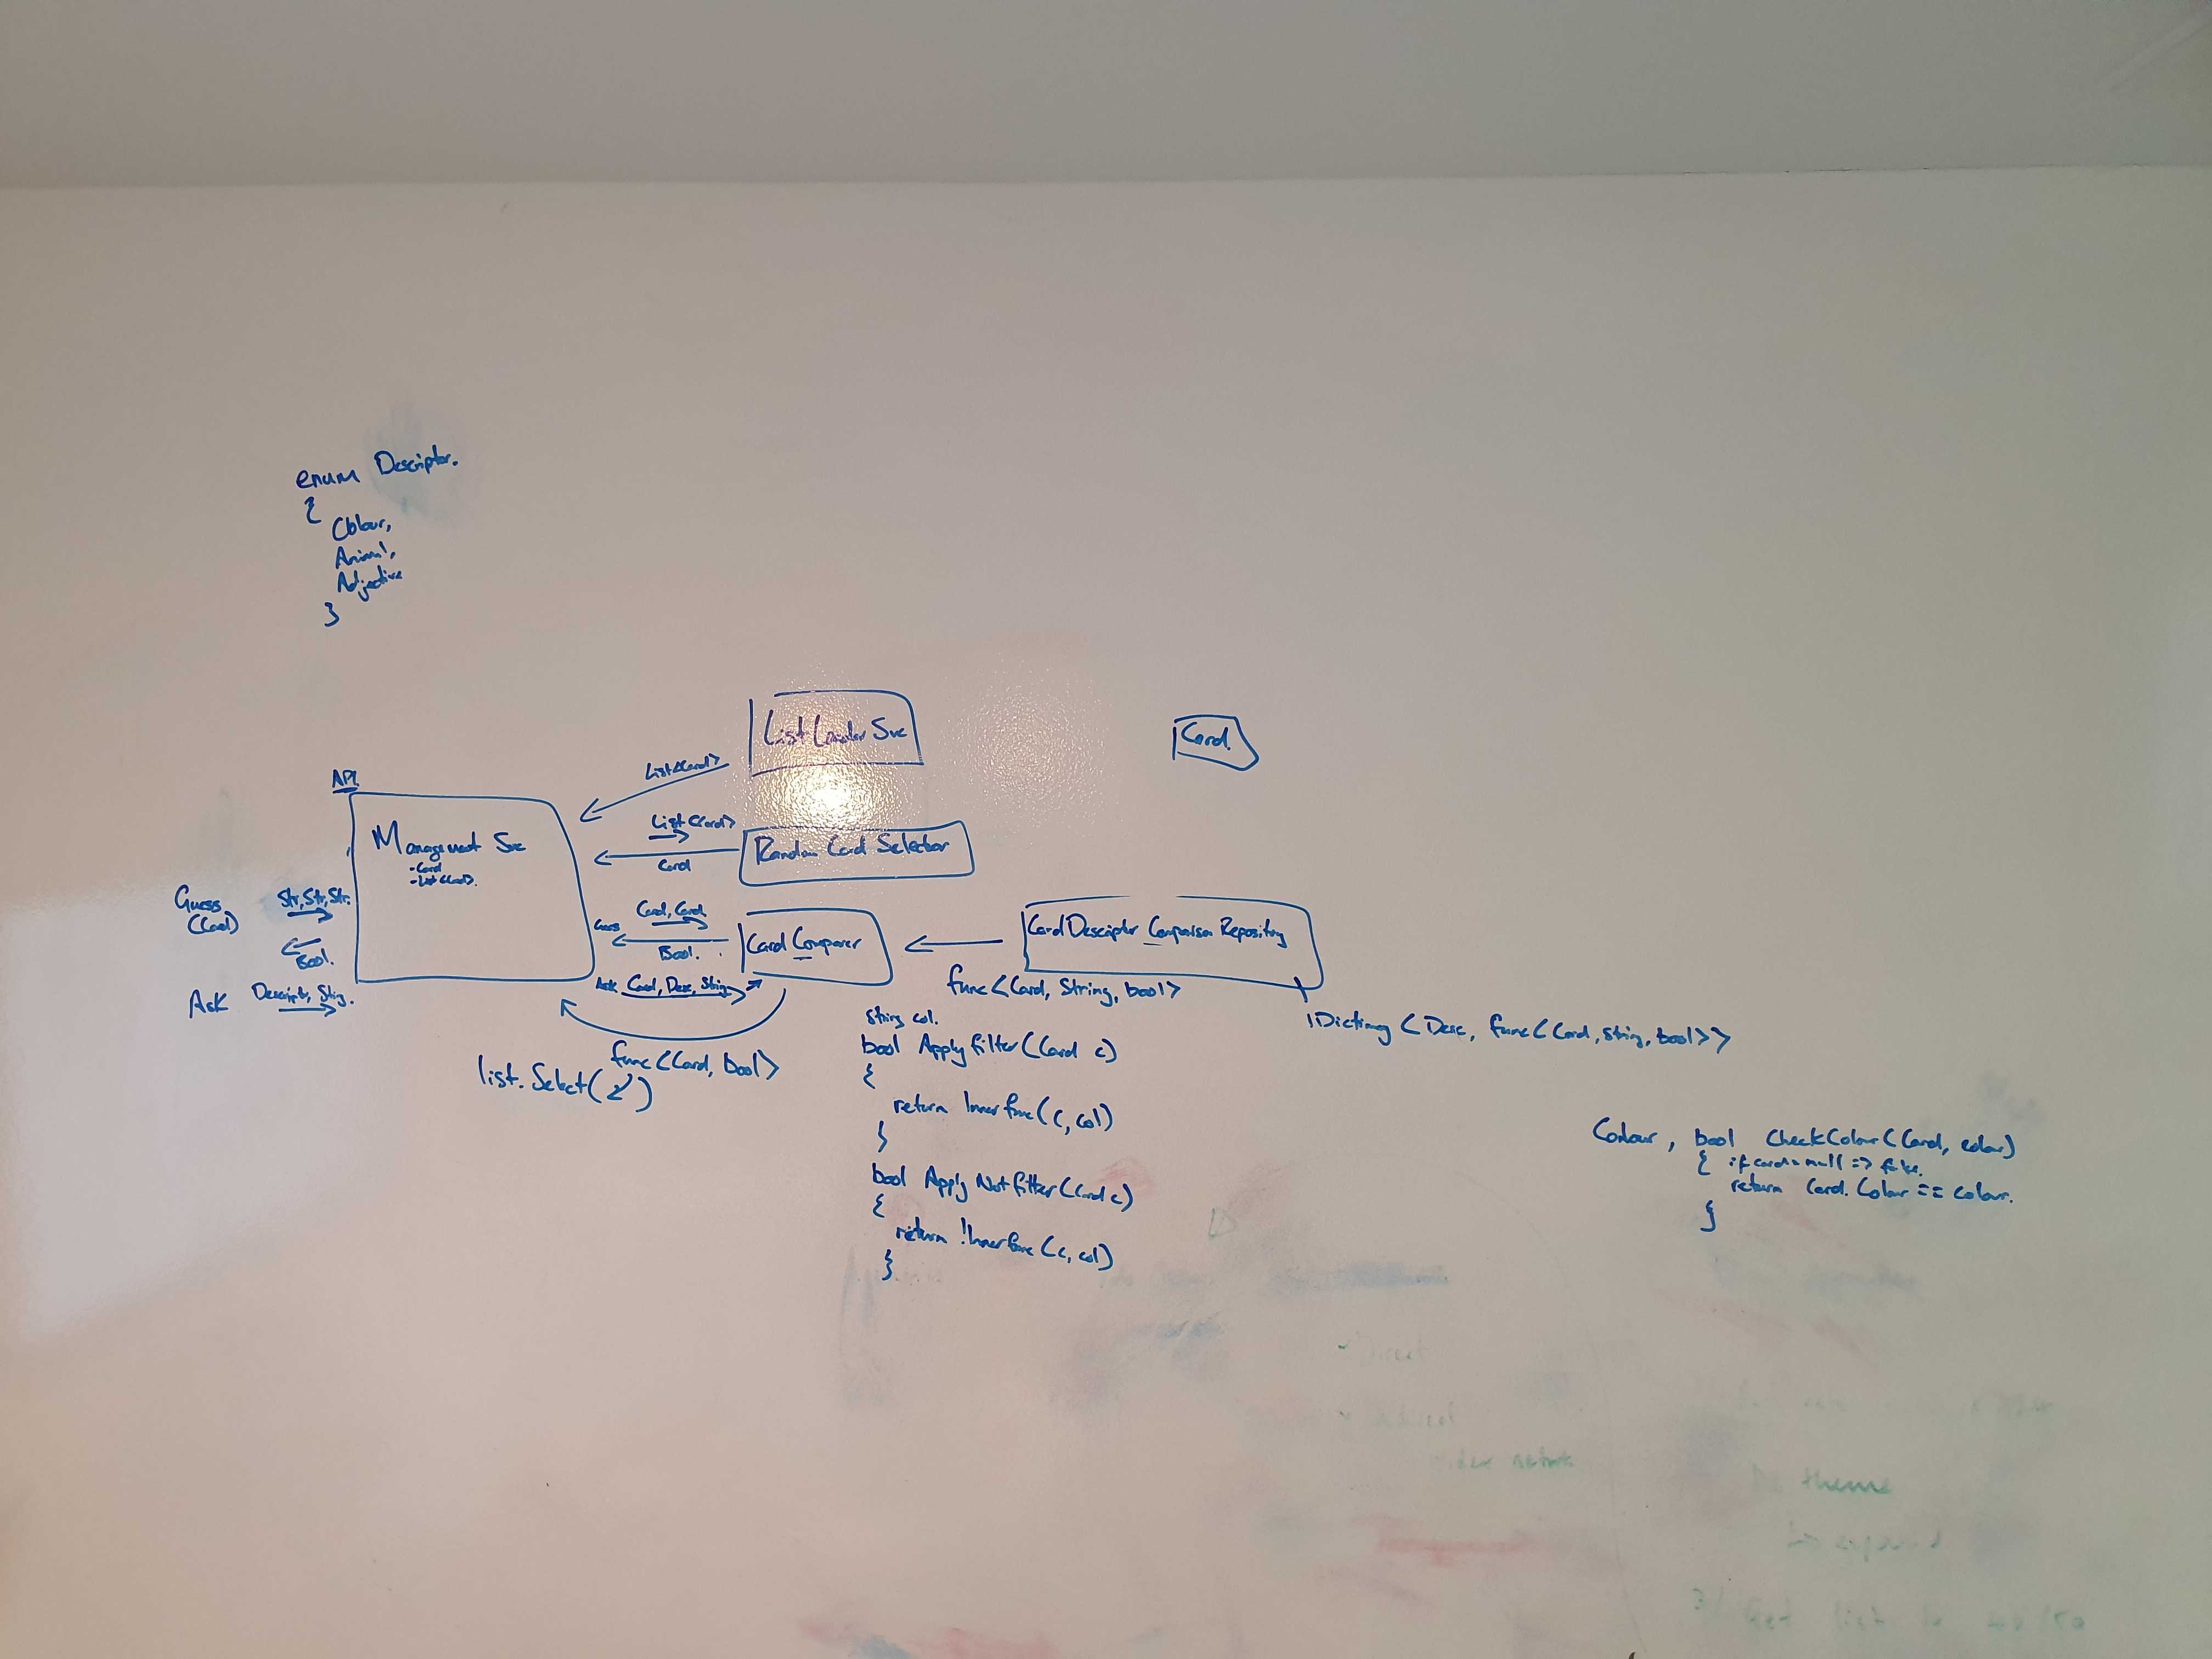 enum Descriptor.
{
Colour,
Animal,
Adjective
}
List Loader Svc
Card.
List<Card>
API
Management Svc
- Card
- List<Card>.
List<Card>
Random Card Selector
Card
Guess
(Card)
Str, Str, Str.
Bool.
Ask Descriptor, String.
Card, Card
Guess
Bool.
Card Comparer
Card Descriptor Comparison Repository
Ask Card, Desc, String
func<Card, String, bool>
IDictionary<Desc, func<Card, String, bool>>
func<Card, bool>
list.Select( )
String col.
bool Apply filter(Card c)
{
return Inner func(c, col)
}
bool Apply Not filter(Card c)
{
return !Inner func(c, col)
}
Colour, bool CheckColour(Card, colour)
{ if card = null => false.
return Card.Colour == colour.
}
theme